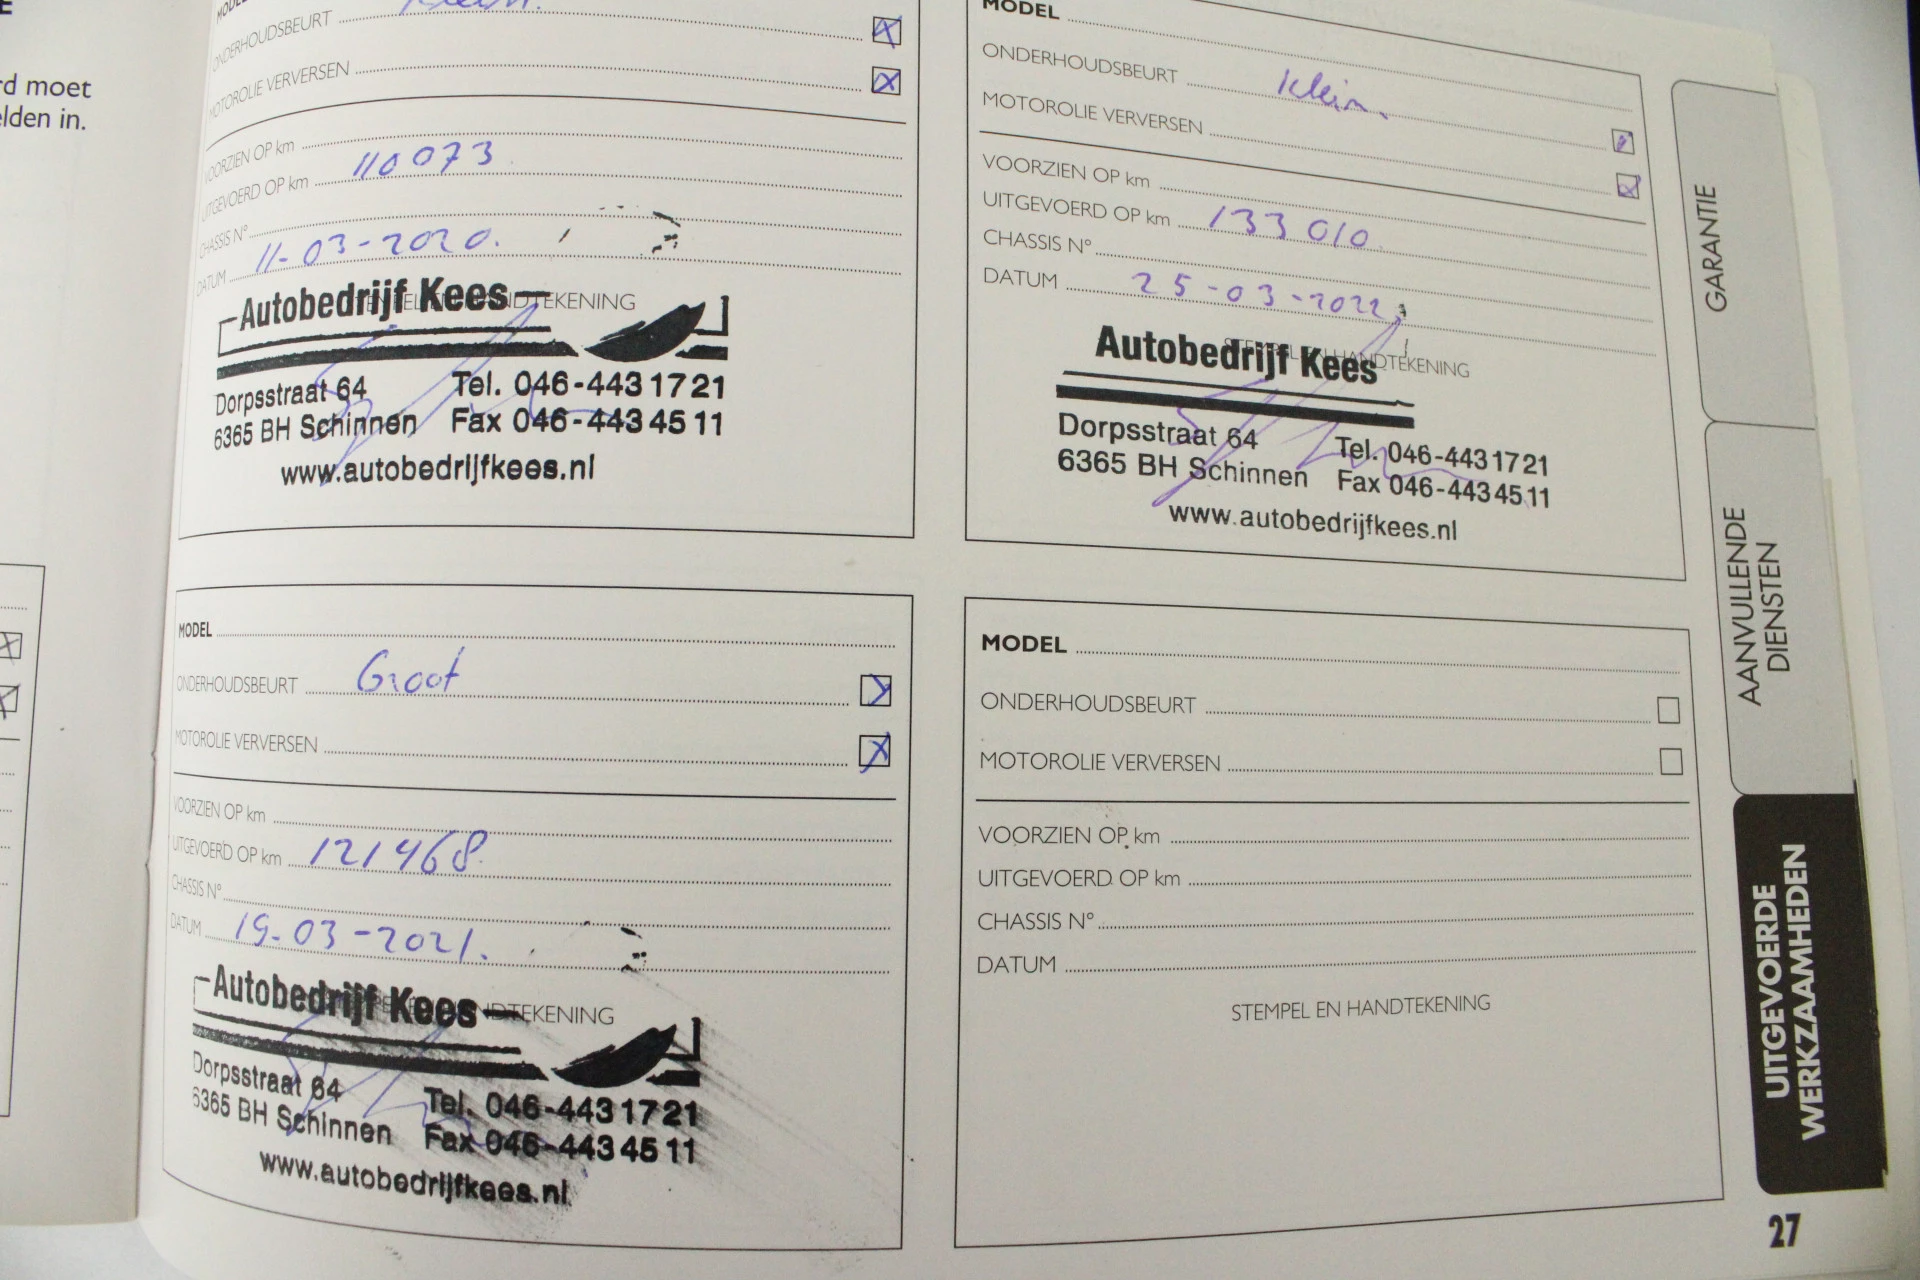 E
rd moet
elden in.
MODEL
ONDERHOUDSBEURT Klein.
MOTOROLIE VERVERSEN
VOORZIEN OP km
UITGEVOERD OP km 110073
CHASSIS N°
DATUM 11-03-2020.
STEMPEL EN HANDTEKENING
Autobedrijf Kees
Dorpsstraat 64 Tel. 046-443 17 21
6365 BH Schinnen Fax 046-443 45 11
www.autobedrijfkees.nl
MODEL
ONDERHOUDSBEURT Klein.
MOTOROLIE VERVERSEN
VOORZIEN OP km
UITGEVOERD OP km 133010
CHASSIS N°
DATUM 25-03-2022
STEMPEL EN HANDTEKENING
Autobedrijf Kees
Dorpsstraat 64 Tel. 046-443 17 21
6365 BH Schinnen Fax 046-443 45 11
www.autobedrijfkees.nl
MODEL
ONDERHOUDSBEURT Groot
MOTOROLIE VERVERSEN
VOORZIEN OP km
UITGEVOERD OP km 121468
CHASSIS N°
DATUM 19-03-2021.
STEMPEL EN HANDTEKENING
Autobedrijf Kees
Dorpsstraat 64 Tel. 046-443 17 21
6365 BH Schinnen Fax 046-443 45 11
www.autobedrijfkees.nl
MODEL
ONDERHOUDSBEURT
MOTOROLIE VERVERSEN
VOORZIEN OP km
UITGEVOERD OP km
CHASSIS N°
DATUM
STEMPEL EN HANDTEKENING
GARANTIE
AANVULLENDE
DIENSTEN
UITGEVOERDE
WERKZAAMHEDEN
27